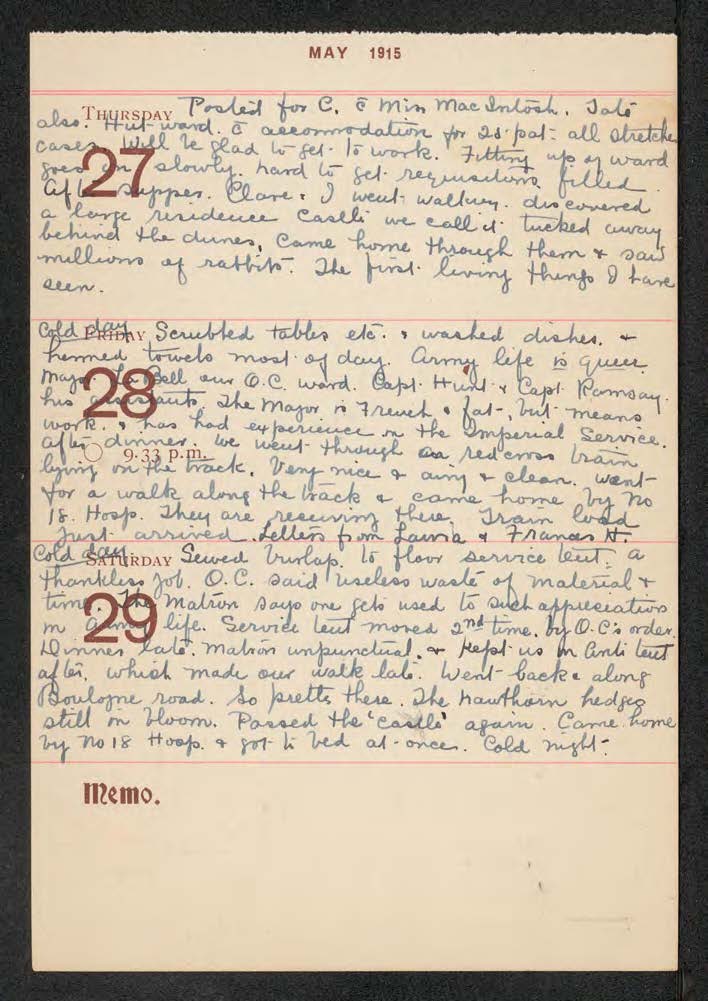 MAY 1915
THURSDAY Posted for C. c̄ Miss MacIntosh. Tate
also. Hut-ward. c̄ accomodation for 28 pat. all stretcher
cases. Will be glad to get to work. Fitting up of ward
27
goes on slowly. hard to get requisitions filled.
Aft supper. Clare & I went walking. discovered
a large residence castle we call it tucked away
behind the dunes. Came home through them & saw
millions of rabbits. The first living things I have
seen.
Cold day FRIDAY Scrubbed tables etc. & washed dishes. &
hemmed towels most of day. Army life is queer.
28
Major La Bell our O.C. ward. Capt Hunt & Capt Ramsay.
his assistants. The Major is French & fat, but means
work. & has had experience in the Imperial Service.
9.33 p.m.
After dinner. We went through a redcross train
lying on the track. Very nice & airy & clean. went
for a walk along the track & came home by No
18. Hosp. They are receiving there. Train load
just arrived. Letters from Laura & Frances H.
Cold day. SATURDAY Sewed burlap. to floor service tent. a
thankless job. O.C. said useless waste of material &
time. The Matron says one gets used to such appreciation
29
in Army life. Service tent moved 2nd time. by O.C's order.
Dinner late. Matron unpunctual. & kept us in Anti tent
after. which made our walk late. Went back along
Boulogne road. So pretty there. The hawthorn hedges
still in bloom. Passed the 'castle' again. Came home
by No 18 Hosp. & got to bed at once. Cold night.
Memo.